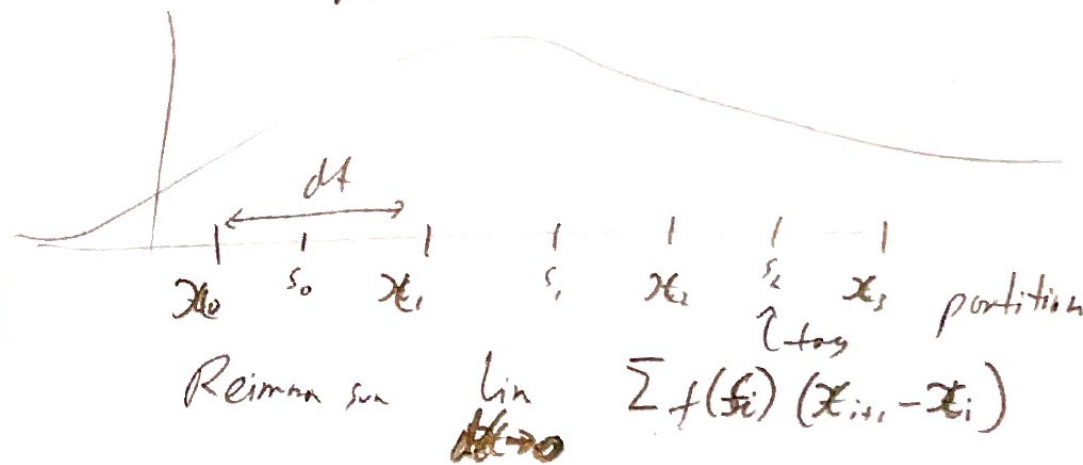 dt
x₀ s₀ x₁ s₁ x₂ s₂ x₃ partition
tag
Reiman sum lim Σ f(si) (xi+1 - xi)
dt→0